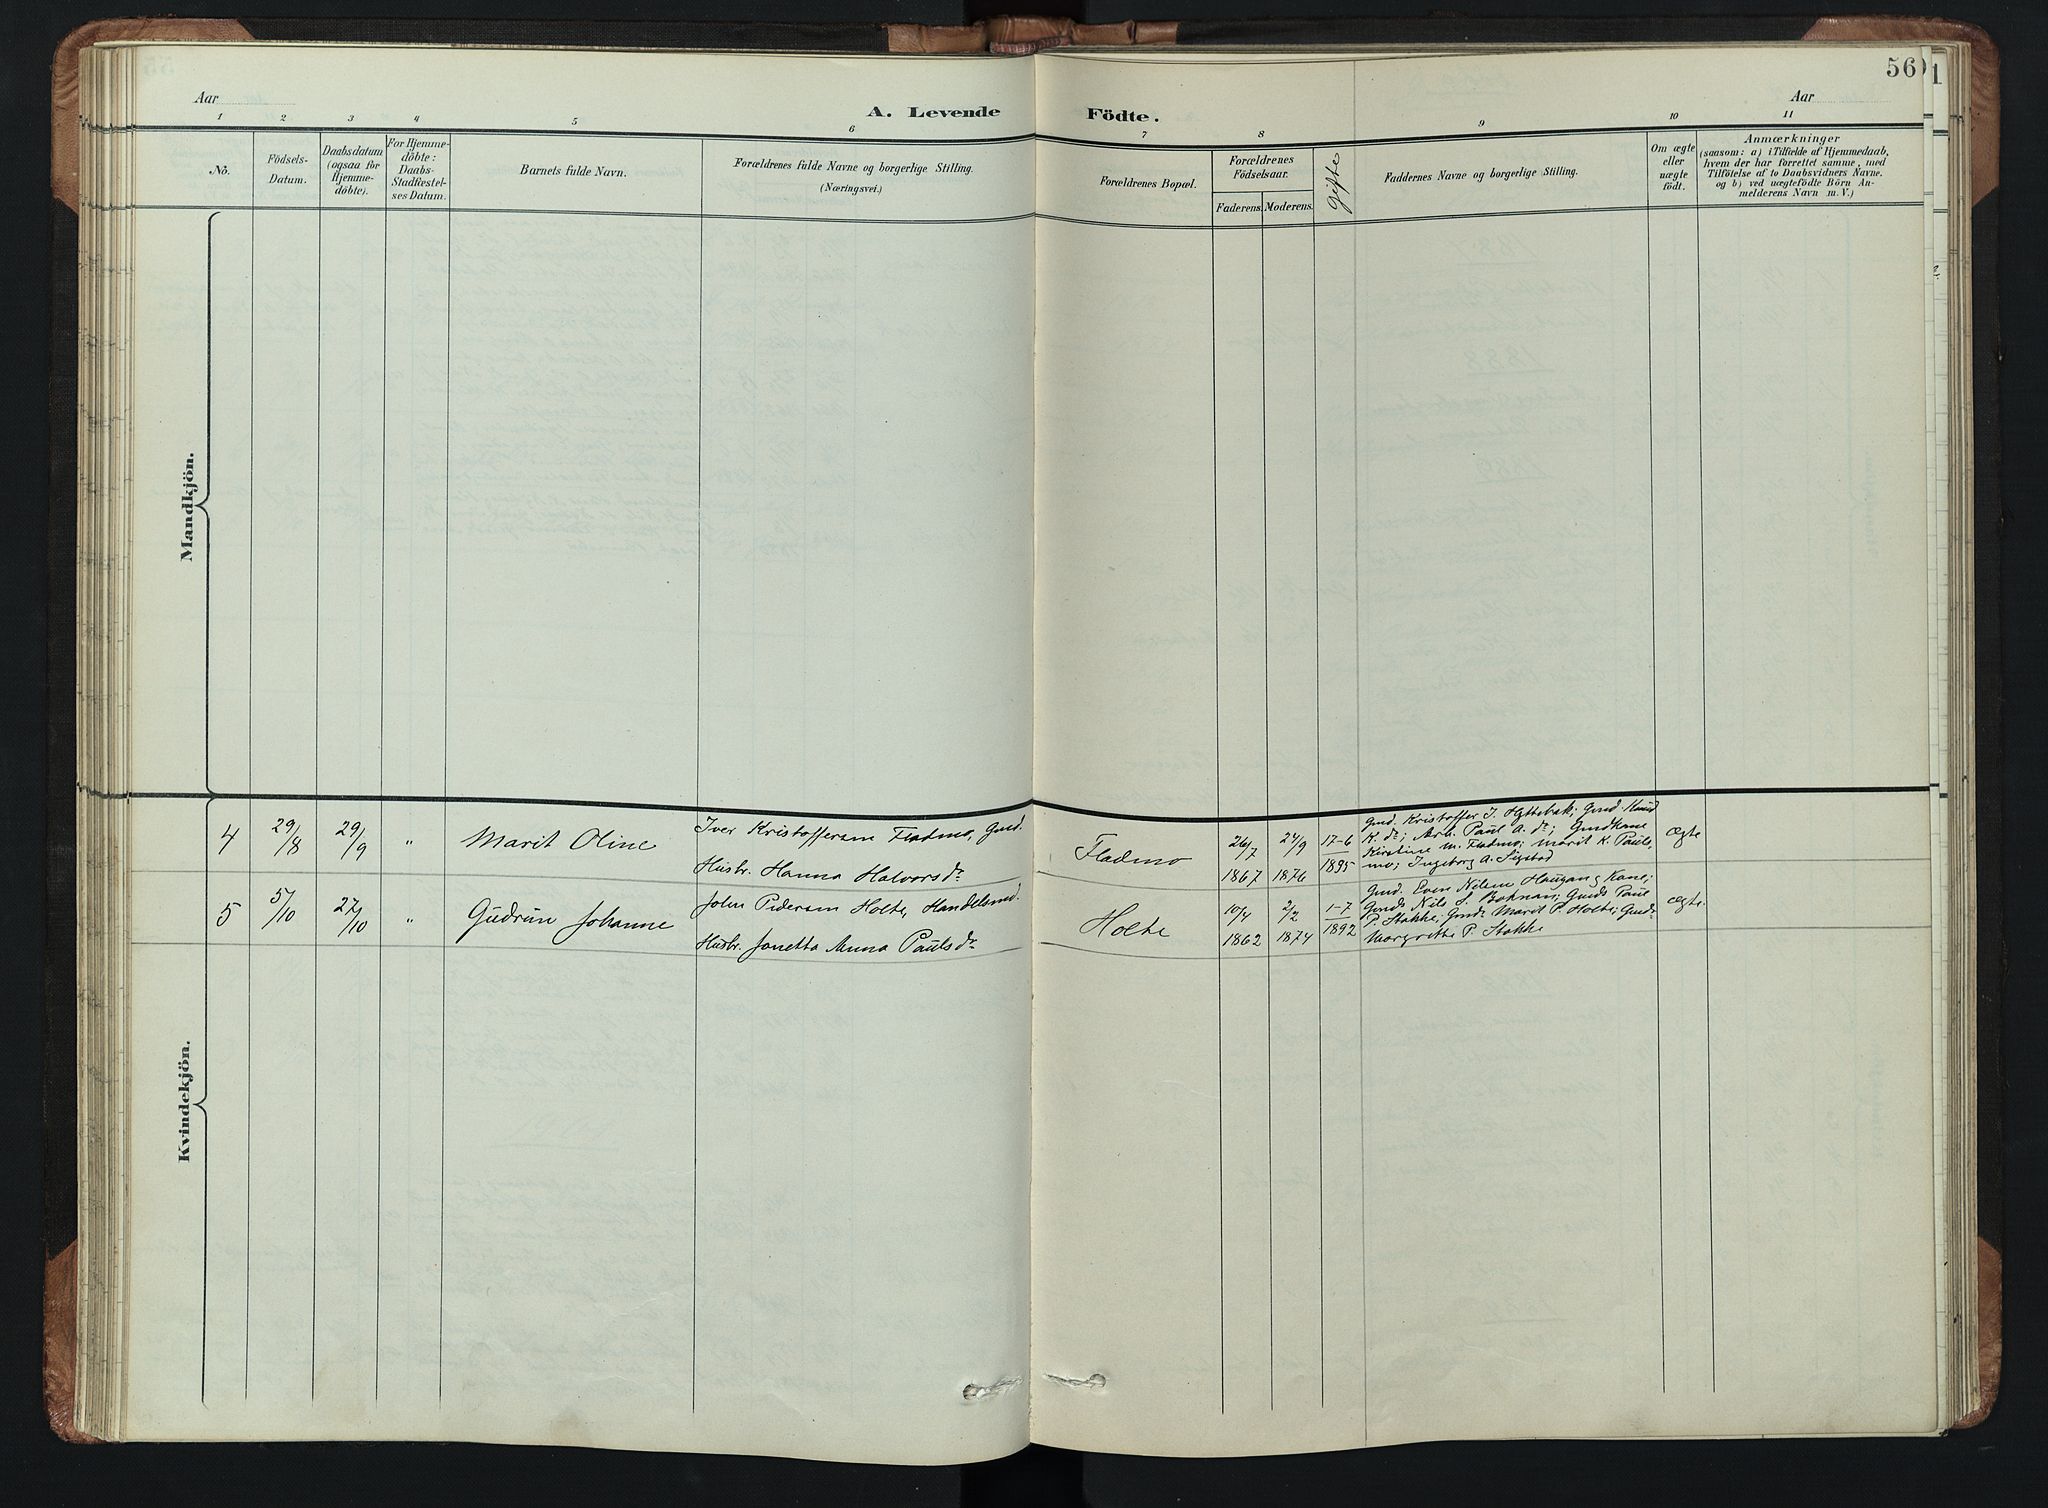 56
Aar
A. Levende Födte.
Aar
1 2 3 4 5 6 7 8 9 10 11
No.
Födsels-
Datum.
Daabsdatum
(ogsaa for
Hjemme-
döbte).
For Hjemme-
döbte:
Daabs-
Stadfæstel-
ses Datum.
Barnets fulde Navn.
Forældrenes fulde Navne og borgerlige Stilling.
(Næringsvei.)
Forældrenes Bopæl.
Forældrenes
Födselsaar.
Faderens. Moderens.
gifte
Faddernes Navne og borgerlige Stilling.
Om ægte
eller
uægte
födt.
Anmærkninger
(saasom: a) i Tilfælde af Hjemmedaab,
hvem der har forrettet samme, med
Tilföielse af to Daabsvidners Navne.
og b) ved uægtefödte Börn An-
melderens Navn m. V.)
Mandkjön.
Kvindekjön.
4 29/8 29/9 " Marit Oline
Iver Kristoffersen Fladmo, Gmd.
Hustr. Hanna Halvorsdr
Fladmo
26/7 1867
24/9 1876
17-6 1895
Gmd. Kristoffer J. Hyttebak; Gmd. Knud
K. do; Arb. Paul A. do; Gmdkone
Kirstine M. Fladmo; Marit K. Pauls-
mo; Ingeborg A. Sigstad
Ægte
5 5/10 27/10 " Gudrun Johanne
John Pedersen Holte, Handelsmd.
Hustr. Jonetta Anna Paulsdr
Holte
10/4 1862
2/2 1874
1-7 1892
Gmd. Even Nilsen Haugan og Kone;
Gmds Nils S. Boknan; Gmds Paul
P. Stokke, Gmdr Marit P. Holte; Gmdr
Margrethe P. Stokke
Ægte.